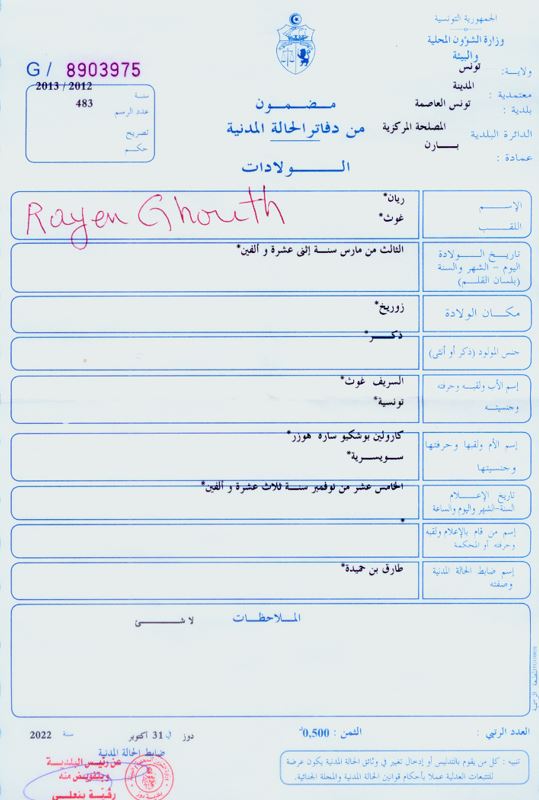 الجمهورية التونسية
وزارة الشؤون المحلية
والبيئة
ولاية: تونس
معتمدية: المدينة
بلدية: تونس العاصمة
الدائرة البلدية: المصلحة المركزية
عمادة: بــــارن
G/ 8903975
سنة 2013 / 2012
عدد الرسم 483
تصريح
حكم
مضمون
من دفاتر الحالة المدنية
الـــولادات
الإسم ريان*
اللقب غوث*
Rayen Ghouth
تاريخ الولادة
اليوم - الشهر والسنة
(بلسان القلم)
الثالث من مارس سنة إثنى عشرة و ألفين*
مكان الولادة زوريخ*
جنس المولود (ذكر أو أنثى) ذكــــر*
إسم الأب ولقبه وحرفته السريف غوث*
وجنسيته تونسية*
إسم الأم ولقبها وحرفتها كارولين بوشكيو ساره هوزر*
وجنسيتها سويسرية*
تاريخ الإعلام
السنة-الشهر واليوم والساعة
الخامس عشر من نوفمبر سنة ثلاث عشرة و ألفين*
إسم من قام بالإعلام ولقبه *
وحرفته أو المحكمة
إسم ضابط الحالة المدنية طارق بن حميدة*
وصفته
الملاحظات لا شئ
العدد الرتبي: الثمن: 0,500 دوز في 31 أكتوبر سنة 2022
تنبيه: كل من يقوم بالتدليس أو إدخال تغيير في وثائق الحالة المدنية يكون عرضة
للتتبعات العدلية عملا بأحكام قوانين الحالة المدنية والمجلة الجنائية.
ضابط الحالة المدنية
عن رئيس البلدية
وبتفويض منه
رقية بنعلي